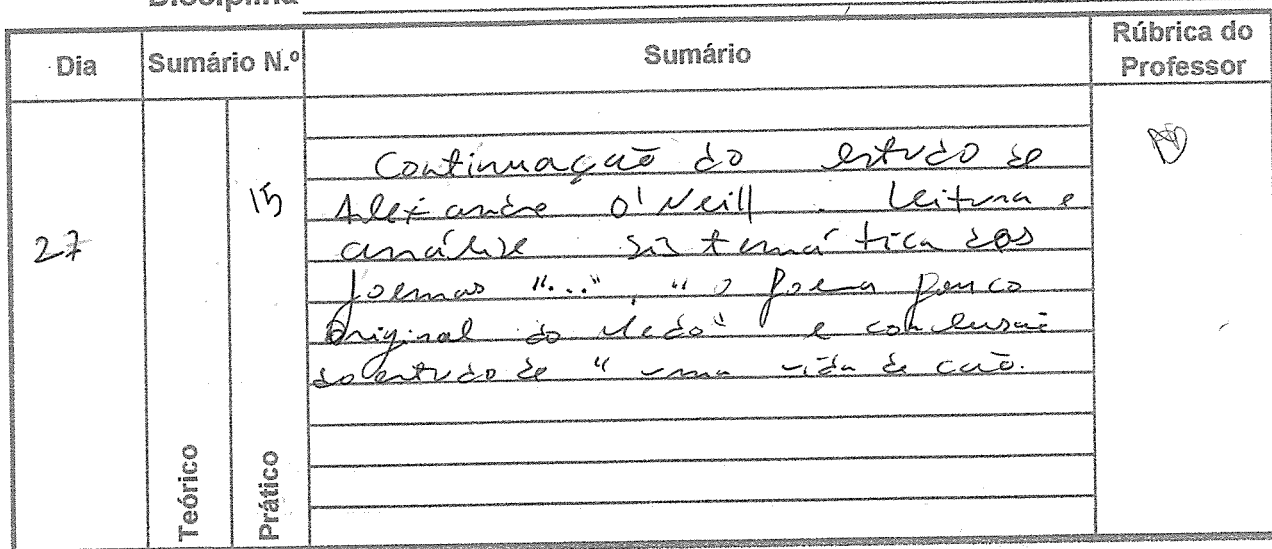 Disciplina
Dia
Sumário N.º
Sumário
Rúbrica do
Professor
27
15
Teórico
Prático
Continuação do estudo de
Alexandre O'Neill. Leitura e
análise sistemática dos
poemas "...", "O poema pouco
original do Medo" e conclusão
do estudo de "uma vida de cão.